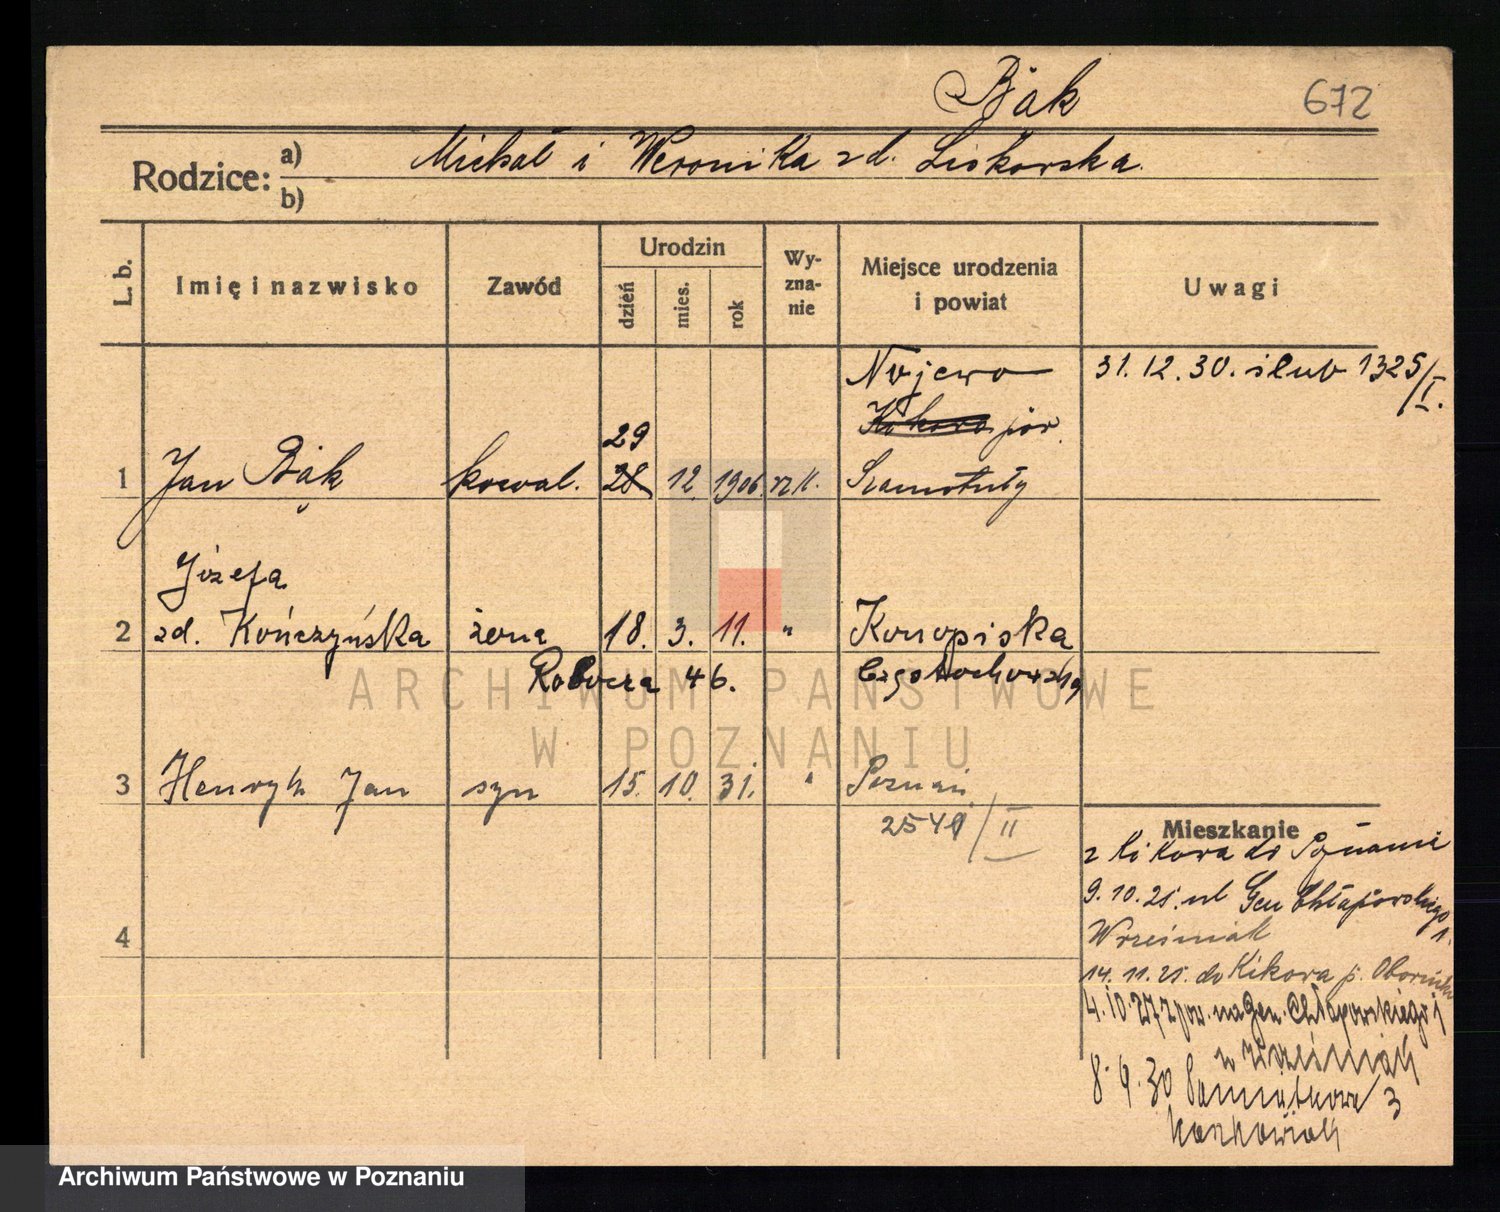 Bąk 672
Rodzice: a) Michał i Weronika zd. Liskorska.
b)
L. b. Imię i nazwisko Zawód Urodzin dzień mies. rok Wy-zna-nie Miejsce urodzenia i powiat Uwagi
Nojewo 31. 12. 30. ślub 1325/I.
29 pow.
1 Jan Bąk kowal. 28 12 1906 rz k. Szamotuły
Józefa
2 zd. Kończyńska żona 18. 3. 11. " Konopiska
Robocza 46. Częstochowska
3 Henryk Jan syn 15. 10. 31. " Poznań
2541/II
Mieszkanie
z Kikowa do Poznania
9. 10. 25. ul Gen Chłapowskiego 1.
Wrześniak
4
14. 11. 25. do Kikowa p. Obornik
4. 10. 27 z pow. na Gen. Chłapowskiego 1
u Wrześniak
8. 9. 30 Pamiątkowa 3
ARCHIWUM PAŃSTWOWE
W POZNANIU
Archiwum Państwowe w Poznaniu